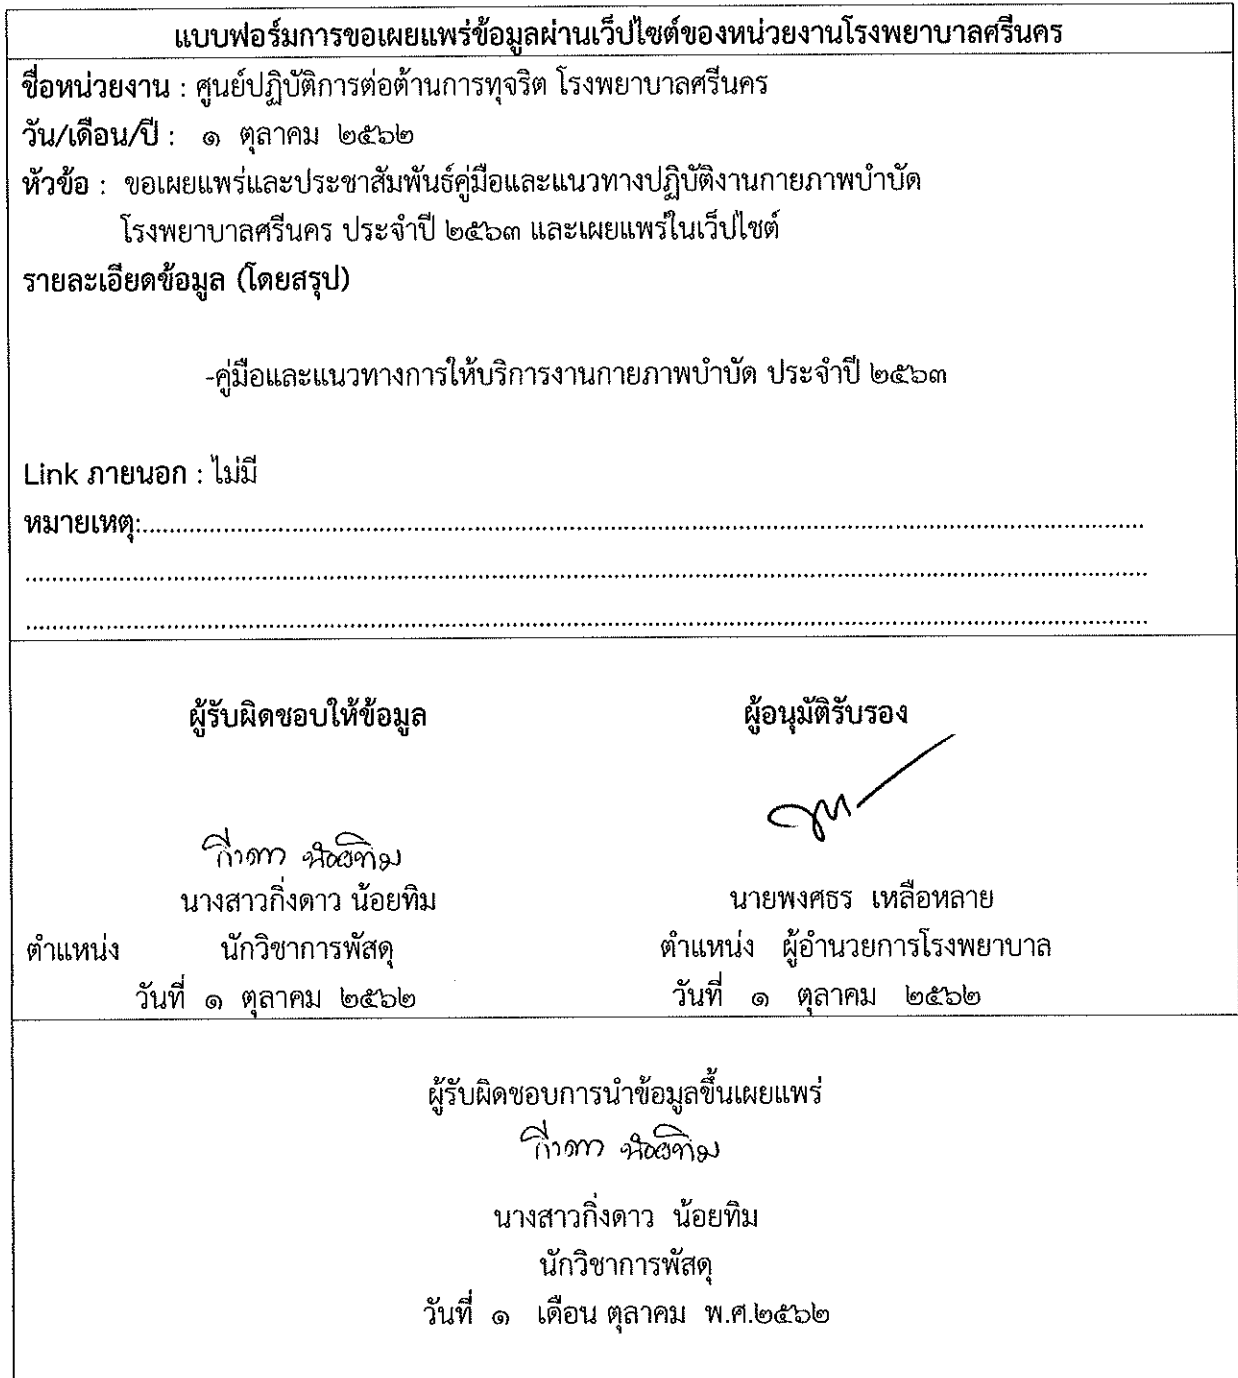 แบบฟอร์มการขอเผยแพร่ข้อมูลผ่านเว็ปไซต์ของหน่วยงานโรงพยาบาลศรีนคร
ชื่อหน่วยงาน : ศูนย์ปฏิบัติการต่อต้านการทุจริต โรงพยาบาลศรีนคร
วัน/เดือน/ปี : ๑ ตุลาคม ๒๕๖๒
หัวข้อ : ขอเผยแพร่และประชาสัมพันธ์คู่มือและแนวทางปฏิบัติงานกายภาพบำบัด
โรงพยาบาลศรีนคร ประจำปี ๒๕๖๓ และเผยแพร่ในเว็ปไซต์
รายละเอียดข้อมูล (โดยสรุป)
-คู่มือและแนวทางการให้บริการงานกายภาพบำบัด ประจำปี ๒๕๖๓
Link ภายนอก : ไม่มี
หมายเหตุ:
ผู้รับผิดชอบให้ข้อมูล ผู้อนุมัติรับรอง
กิ่งดาว น้อยทิม
นางสาวกิ่งดาว น้อยทิม นายพงศธร เหลือหลาย
ตำแหน่ง นักวิชาการพัสดุ ตำแหน่ง ผู้อำนวยการโรงพยาบาล
วันที่ ๑ ตุลาคม ๒๕๖๒ วันที่ ๑ ตุลาคม ๒๕๖๒
ผู้รับผิดชอบการนำข้อมูลขึ้นเผยแพร่
กิ่งดาว น้อยทิม
นางสาวกิ่งดาว น้อยทิม
นักวิชาการพัสดุ
วันที่ ๑ เดือน ตุลาคม พ.ศ.๒๕๖๒